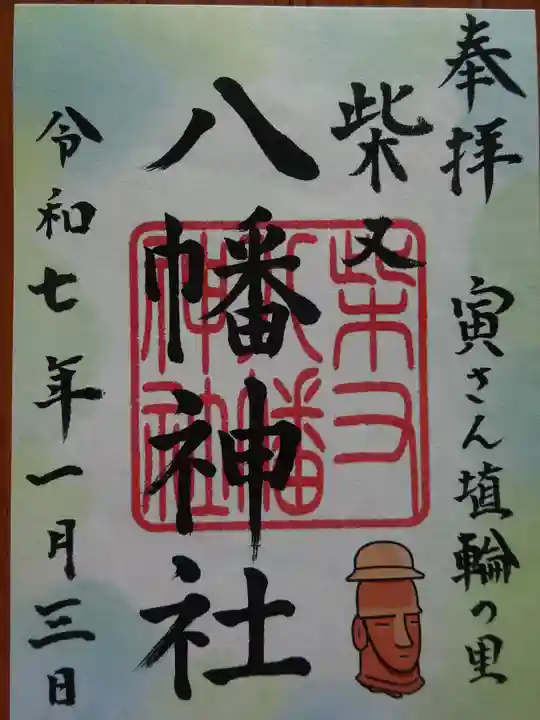 奉拝
寅さん埴輪の里
柴又
八幡神社
令和七年一月三日
柴又
八幡
神社